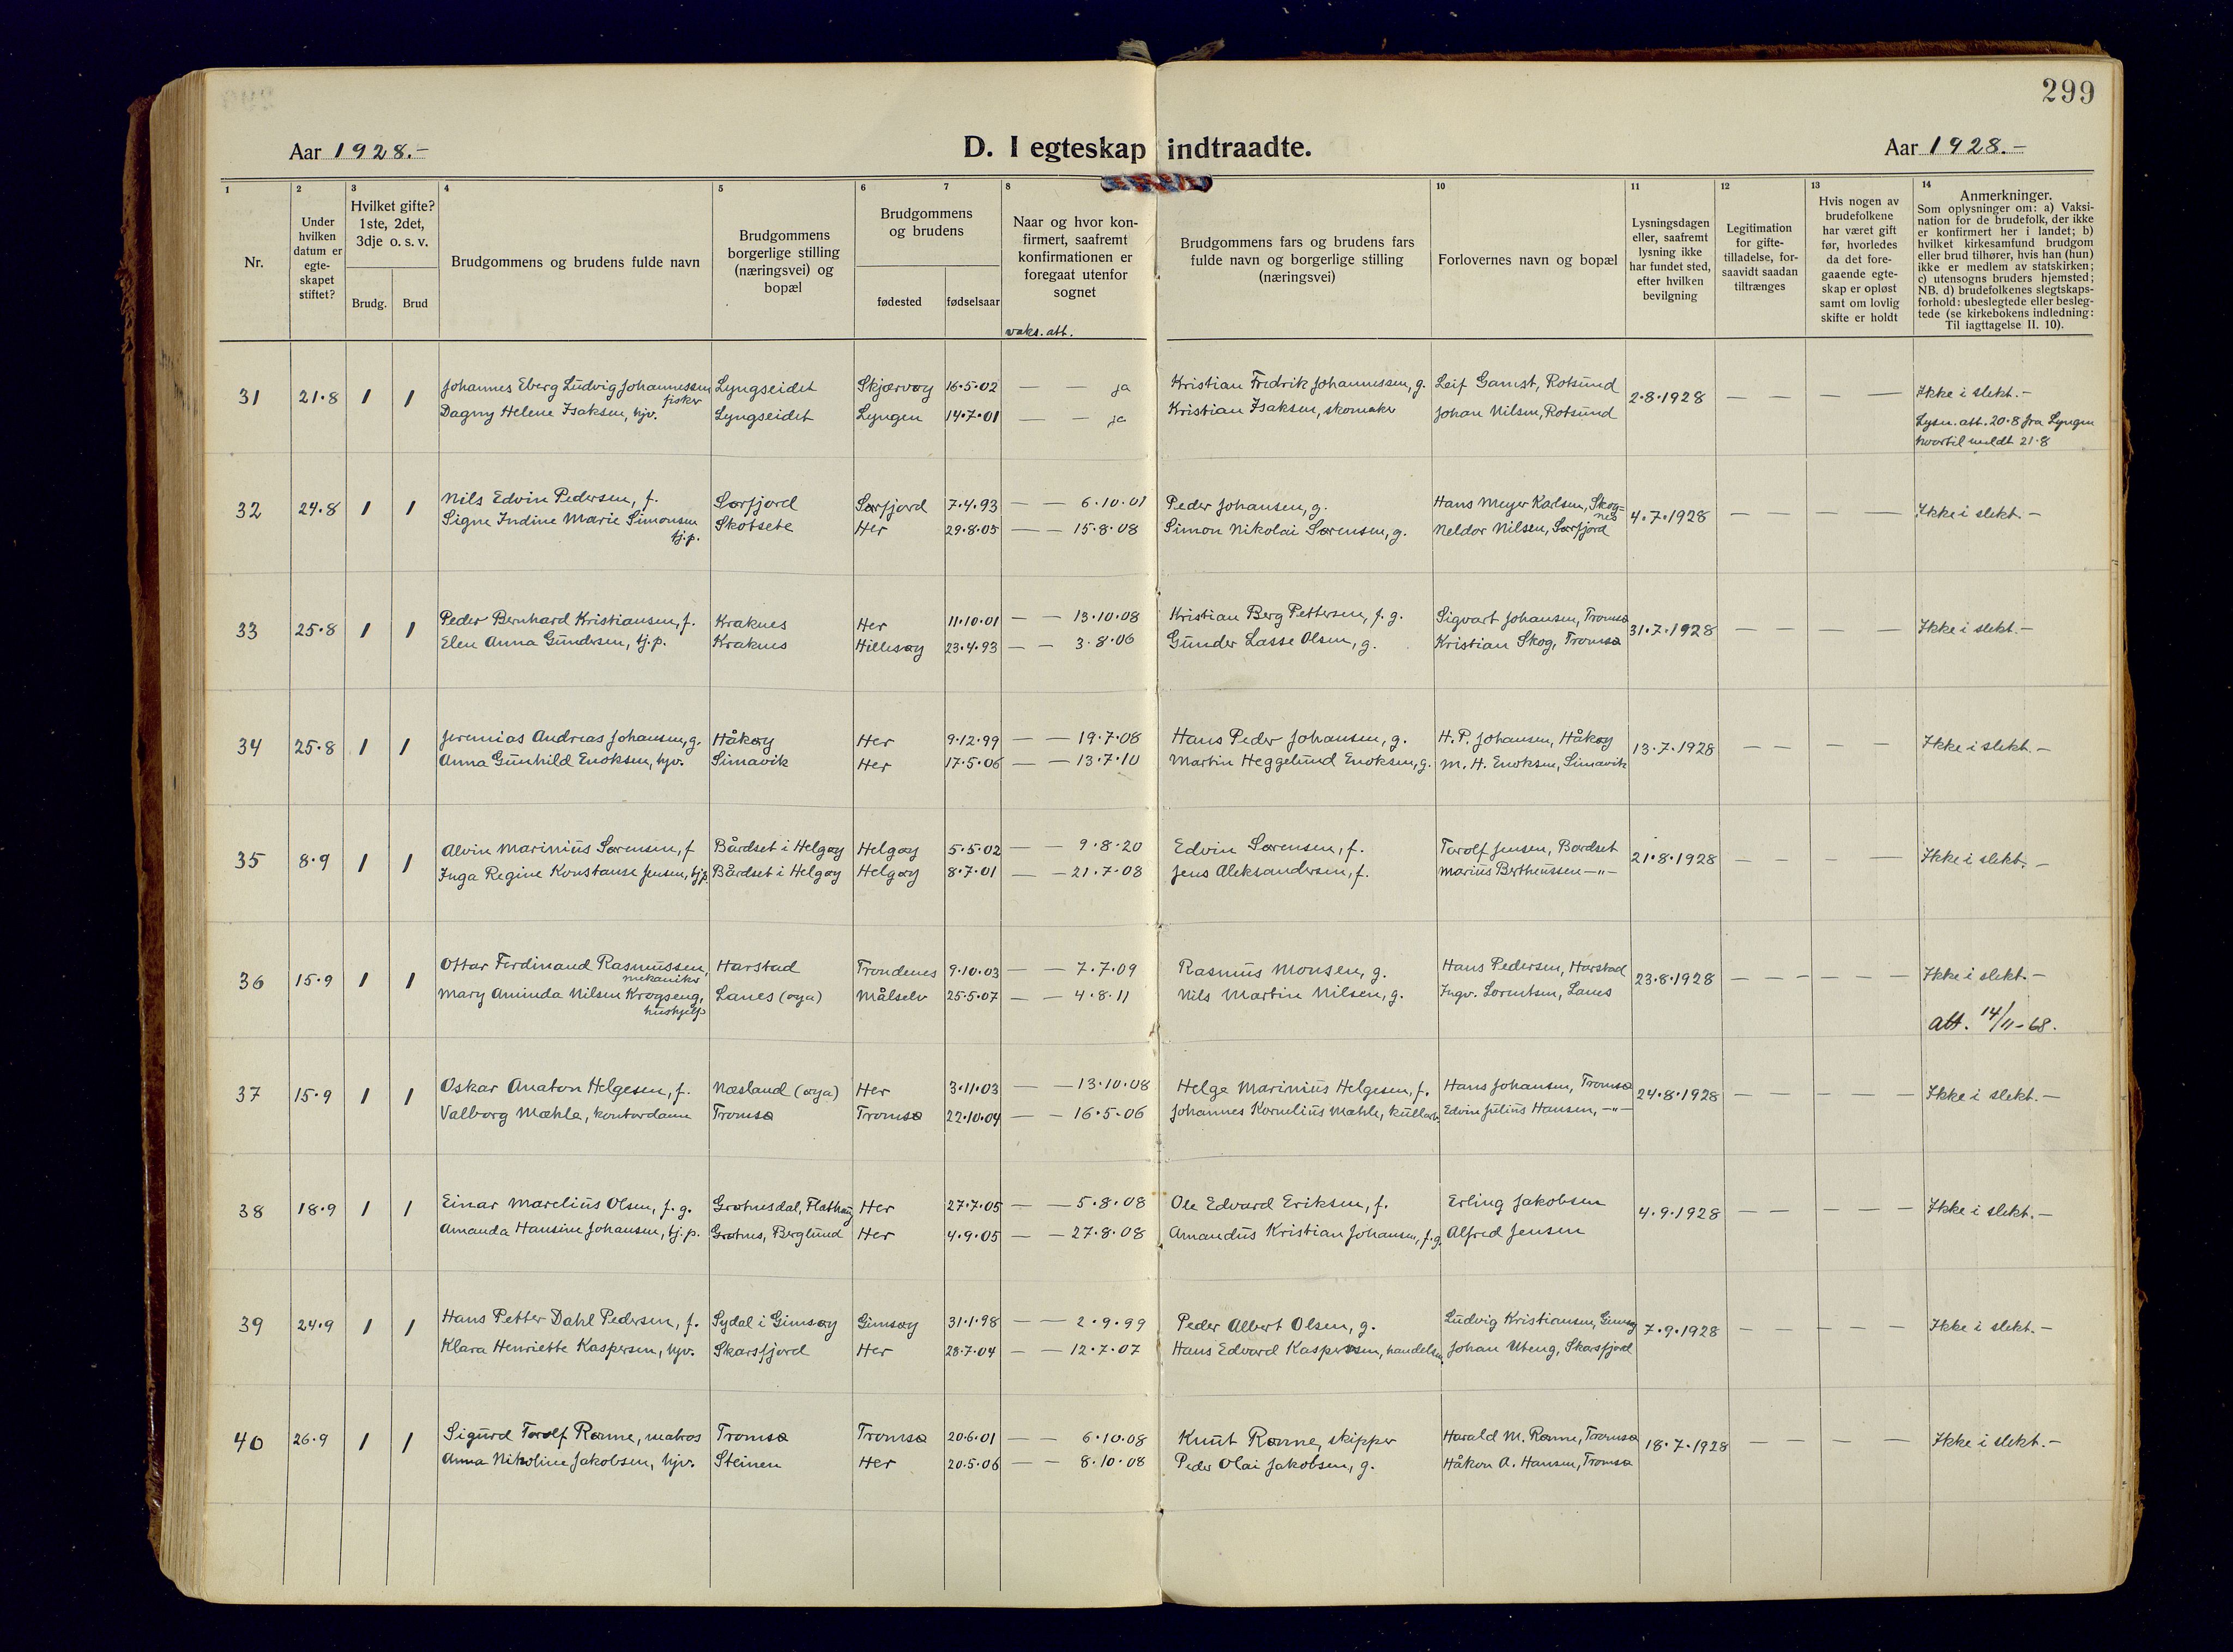 299
Aar 1928.-
D. I egteskap indtraadte.
Aar 1928.-
1
2
3
4
5
6
7
8
10
11
12
13
14
Nr.
Under hvilken datum er egte-skapet stiftet?
Hvilket gifte? 1ste, 2det, 3dje o. s. v.
Brudg.
Brud
Brudgommens og brudens fulde navn
Brudgommens borgerlige stilling (næringsvei) og bopæl
Brudgommens og brudens
fødested
fødselsaar
Naar og hvor kon-firmert, saafremt konfirmationen er foregaat utenfor sognet
vaks. att.
Brudgommens fars og brudens fars fulde navn og borgerlige stilling (næringsvei)
Forlovernes navn og bopæl
Lysningsdagen eller, saafremt lysning ikke har fundet sted, efter hvilken bevilgning
Legitimation for gifte-tilladelse, for-saavidt saadan tiltrænges
Hvis nogen av brudefolkene har været gift før, hvorledes da det fore-gaaende egte-skap er opløst samt om lovlig skifte er holdt
Anmerkninger.
Som oplysninger om: a) Vaksi-nation for de brudefolk, der ikke er konfirmert her i landet; b) hvilket kirkesamfund brudgom eller brud tilhører, hvis han (hun) ikke er medlem av statskirken; c) utensogns bruders hjemsted; NB. d) brudefolkenes slegtskaps-forhold: ubeslegtede eller besleg-tede (se kirkebokens indledning: Til iagttagelse II. 10).
31 21.8 1 1 Johannes Eberg Ludvig Johannessen fisker Lyngseidet Skjærvøy 16.5.02 — — ja Kristian Fredrik Johannessen, g. Leif Gamst, Rotsund 2.8.1928 — — — — Ikke i slekt.-
Dagny Helene Isaksen, hjv. Lyngseidet Lyngen 14.7.01 — — ja Kristian Isaksen, skomaker Johan Nilsen, Rotsund
Lysn. att. 20.8 fra Lyngen
hvortil meldt 21.8
32 24.8 1 1 Nils Edvin Pedersen, f. Sørfjord Sørfjord 7.4.93 — — 6.10.01 Peder Johansen, g. Hans Meyer Karlsen, Skog=nes 4.7.1928 — — — — Ikke i slekt.-
Signe Indine Marie Simonsen tj.p. Skotsete Her 29.8.05 — — 15.8.08 Simon Nikolai Sørensen, g. Neldor Nilsen, Sørfjord
33 25.8 1 1 Peder Bernhard Kristiansen, f. Kraknes Her 11.10.01 — — 13.10.08 Kristian Berg Pettersen, f. g. Sigvart Johansen, Tromsø 31.7.1928 — — — — Ikke i slekt.-
Elen Anna Gundersen, tj.p. Kraknes Hillesøy 23.4.93 — — 3.8.06 Gunder Lasse Olsen, g. Kristian Skog, Tromsø
34 25.8 1 1 Jeremias Andreas Johansen, g. Håkøy Her 9.12.99 — — 19.7.08 Hans Peder Johansen, g. H. P. Johansen, Håkøy 13.7.1928 — — — — Ikke i slekt.-
Anna Gunhild Enoksen, hjv. Simavik Her 17.5.06 — — 13.7.10 Martin Heggelund Enoksen, g. M. H. Enoksen, Simavik
35 8.9 1 1 Alvin Marinius Sørensen, f Bårdset i Helgøy Helgøy 5.5.02 — — 9.8.20 Edvin Sørensen, f. Torolf Jensen, Bardset 21.8.1928 — — — — Ikke i slekt.-
Inga Regine Konstanse Jensen, tj.p. Bårdset i Helgøy Helgøy 8.7.01 — — 21.7.08 Jens Aleksandersen, f. Marius Bertheussen —"—
36 15.9 1 1 Ottar Ferdinand Rasmussen, mekaniker Harstad Trondenes 9.10.03 — — 7.7.09 Rasmus Monsen, g. Hans Pedersen, Harstad 23.8.1928 — — — — — — Ikke i slekt.-
Mary Aminda Nilsen Krogseng, hushjelp Lanes (øya) Målselv 25.5.07 — — 4.8.11 Nils Martin Nilsen, g. Ingv. Lorentsen, Lanes
Att. 14/11-68.
37 15.9 1 1 Oskar Anaton Helgesen, f. Næsland (øya) Her 3.11.03 — — 13.10.08 Helge Marinius Helgesen, f. Hans Johansen, Tromsø 24.8.1928 — — — — — Ikke i slekt.-
Valborg Mæhle, kontordame Tromsø Tromsø 22.10.04 — — 16.5.06 Johannes Kornelius Mæhle, kullarb. Edvin Julius Hansen, —"—
38 18.9 1 1 Einar Marelius Olsen, f. g. Grøtnesdal, Flathaug Her 27.7.05 — — 5.8.08 Ole Edvard Eriksen, f. Erling Jakobsen 4.9.1928 — — — — — Ikke i slekt.-
Amanda Hansine Johansen, tj.p. Grøtnes, Berglund Her 4.9.05 — — 27.8.08 Amandus Kristian Johansen, f.g. Alfred Jensen
39 24.9 1 1 Hans Petter Dahl Pedersen, f. Sydal i Gimsøy Gimsøy 31.1.98 — — 2.9.99 Peder Albert Olsen, g. Ludvig Kristiansen, Gimsøy 7.9.1928 — — — — — Ikke i slekt.-
Klara Henriette Kaspersen, hjv. Skarsfjord Her 28.7.04 — — 12.7.07 Hans Edvard Kaspersen, handelsm. Johan Uteng, Skarsfjord
40 26.9 1 1 Sigurd Torolf Rønne, matros Tromsø Tromsø 20.6.01 — — 6.10.08 Knut Rønne, skipper Harald M. Rønne, Tromsø 18.7.1928 — — — — Ikke i slekt.-
Anna Nikoline Jakobsen, hjv. Steinen Her 20.5.06 — — 8.10.08 Peder Olai Jakobsen, g. Håkon A. Hansen, Tromsø